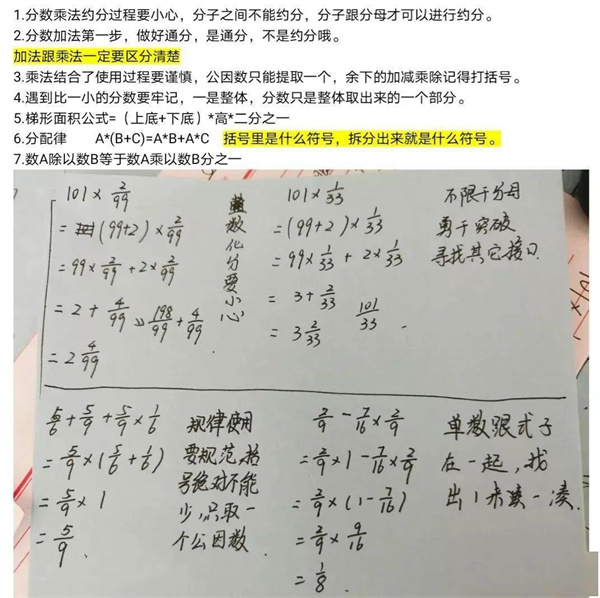 1.分数乘法约分过程要小心，分子之间不能约分，分子跟分母才可以进行约分。
2.分数加法第一步，做好通分，是通分，不是约分哦。
加法跟乘法一定要区分清楚
3.乘法结合了使用过程要谨慎，公因数只能提取一个，余下的加减乘除记得打括号。
4.遇到比一小的分数要牢记，一是整体，分数只是整体取出来的一个部分。
5.梯形面积公式=（上底+下底）*高*二分之一
6.分配律 A*(B+C)=A*B+A*C 括号里是什么符号，拆分出来就是什么符号。
7.数A除以数B等于数A乘以数B分之一
101×2/99
=(99+2)×2/99
=99×2/99+2×2/99
=2+4/99 198/99+4/99
=2 4/99
整数化分要小心
101×1/33
=(99+2)×1/33
=99×1/33+2×1/33
=3+2/33
=3 2/33 101/33
不限于分母
勇于突破
寻找其它接口
5/6+5/9+5/9×1/6
=5/9×(5/6+1/6)
=5/9×1
=5/9
规律使用
要规范,括
号绝对不能
少,只取一
个公因数
2/9-7/16×2/9
=2/9×1-7/16×2/9
=2/9×(1-7/16)
=2/9×9/16
=1/8
单数跟式子
在一起,找
出1来凑一凑